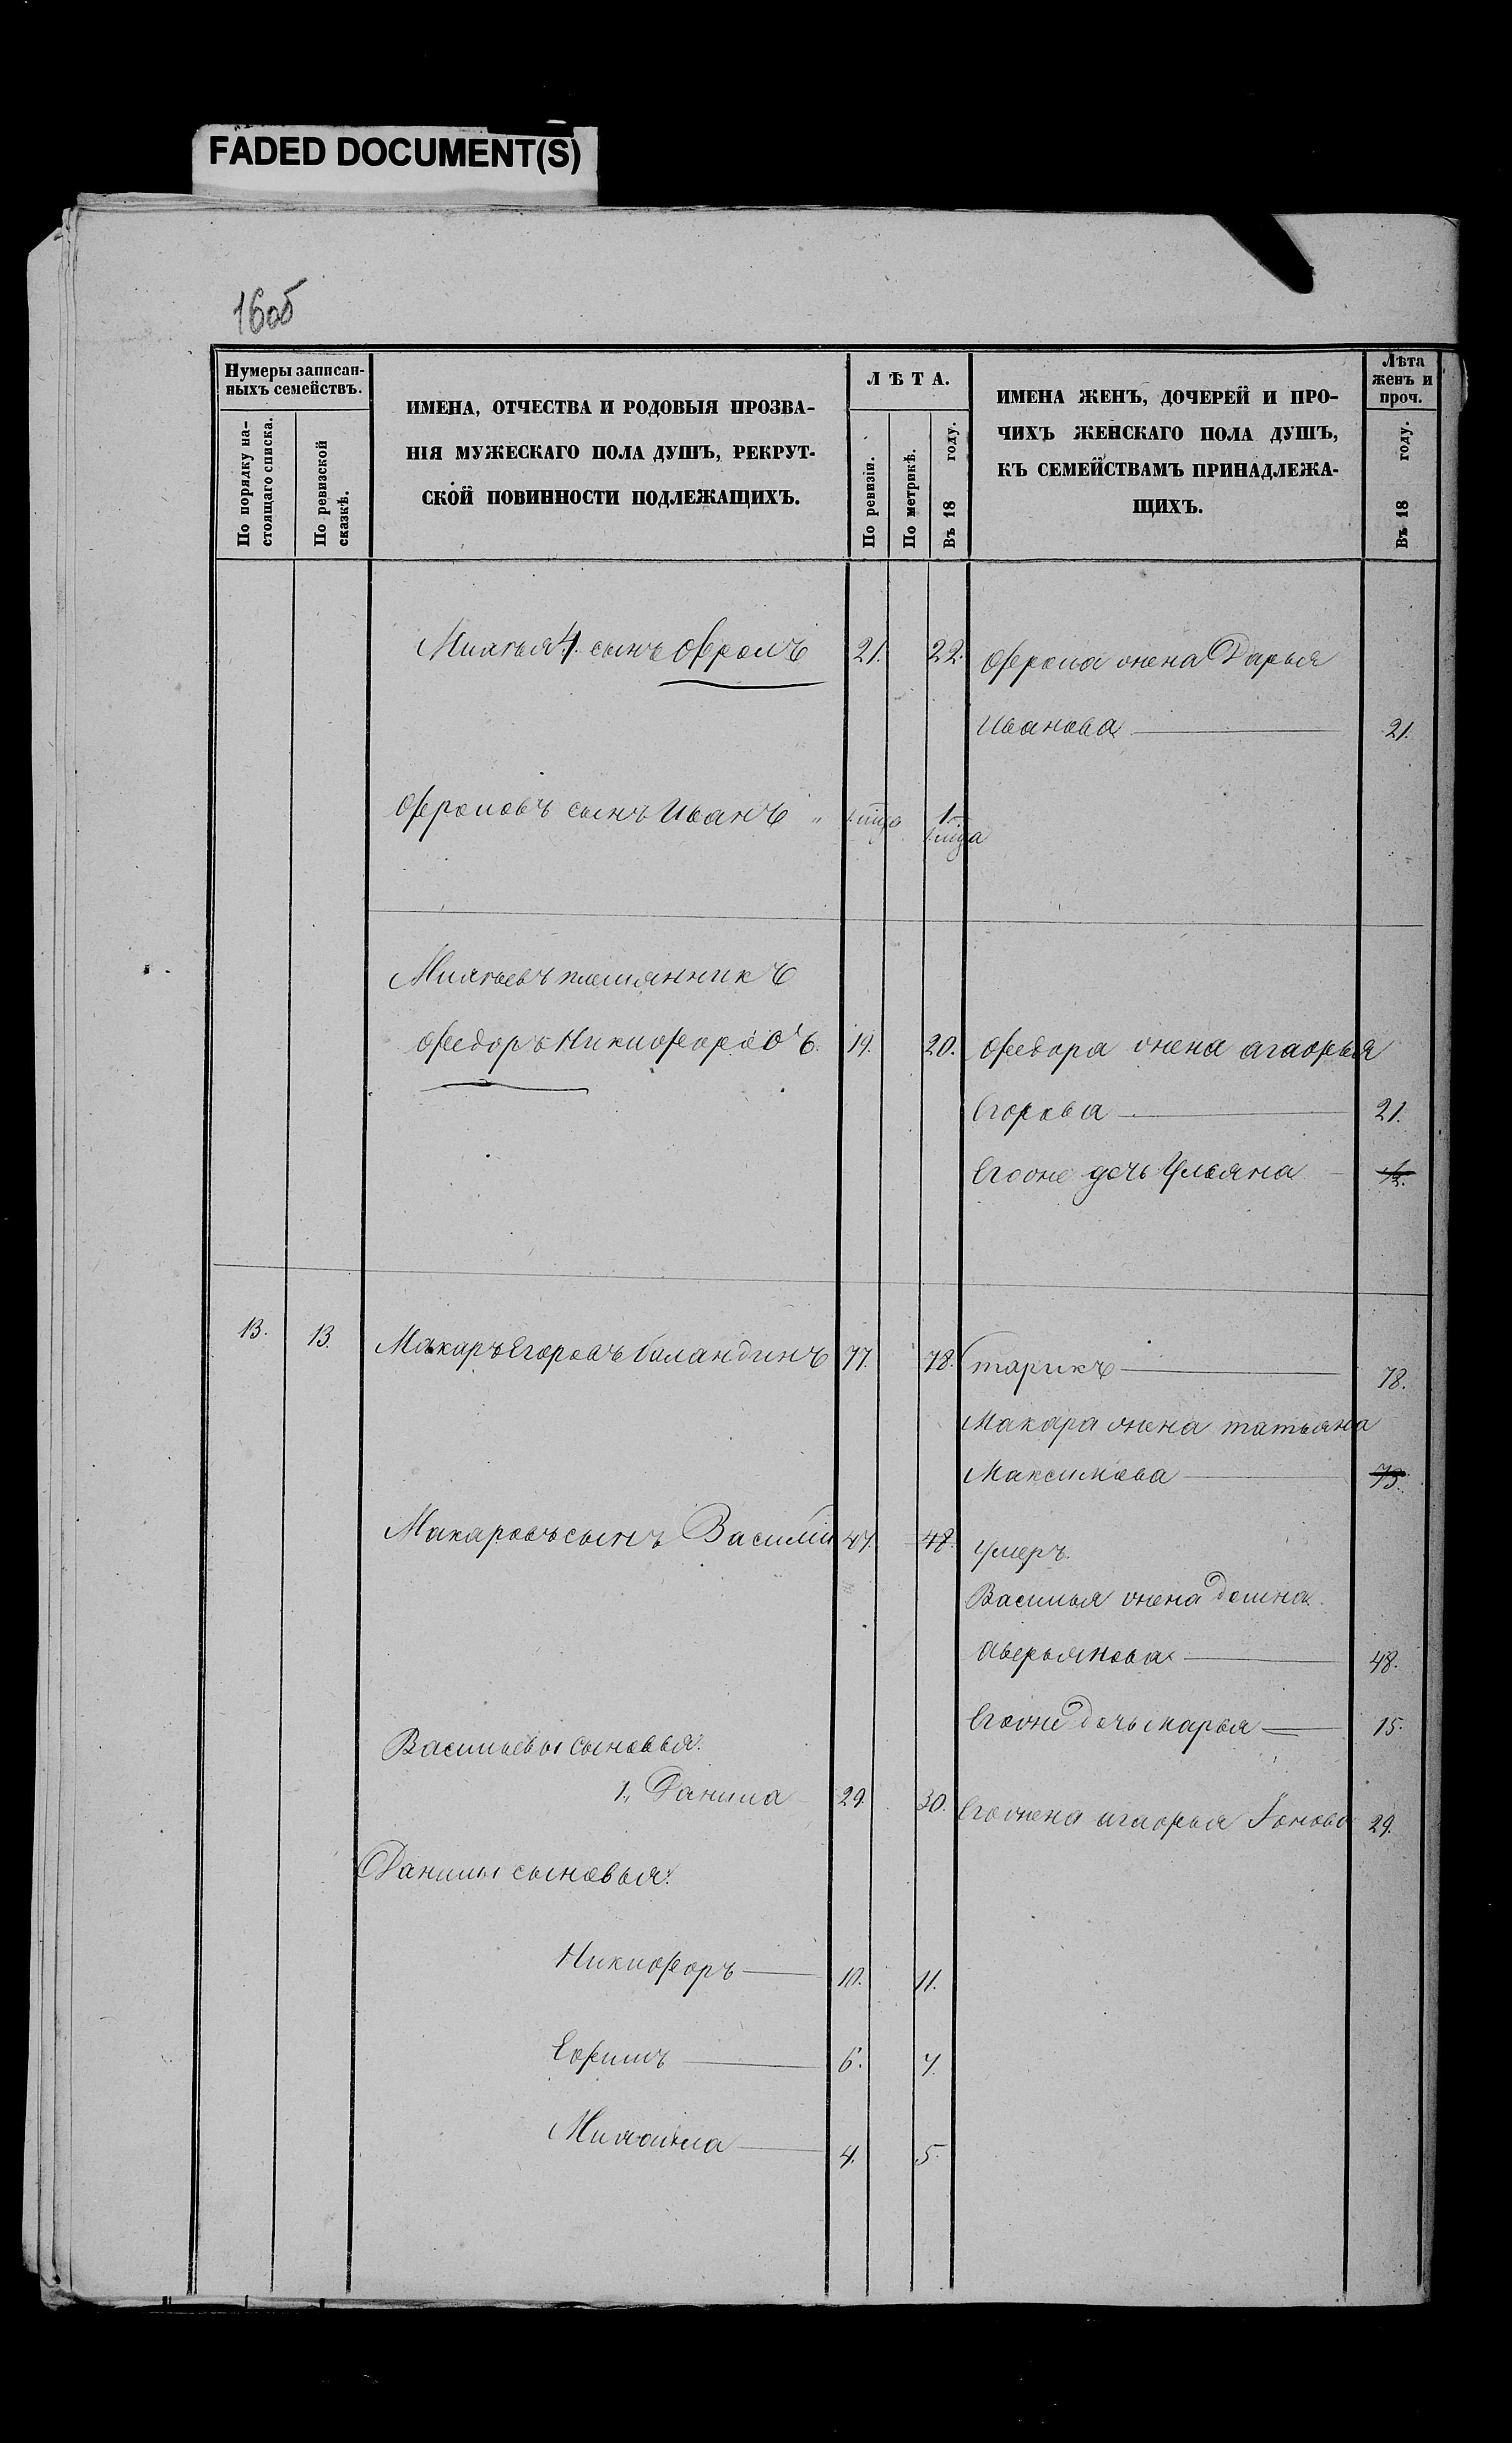 FADED DOCUMENT(S)
16об
Нумеры записан-
ныхъ семействъ.
По порядку на-
стоящаго списка.
По ревизской
сказкѣ.
ИМЕНА, ОТЧЕСТВА И РОДОВЫЯ ПРОЗВА-
НІЯ МУЖЕСКАГО ПОЛА ДУШЪ, РЕКРУТ-
СКОЙ ПОВИННОСТИ ПОДЛЕЖАЩИХЪ.
ЛѢТА.
По ревизіи.
По метрикѣ.
Въ 18 году.
ИМЕНА ЖЕНЪ, ДОЧЕРЕЙ И ПРО-
ЧИХЪ ЖЕНСКАГО ПОЛА ДУШЪ,
КЪ СЕМЕЙСТВАМЪ ПРИНАДЛЕЖА-
ЩИХЪ.
Лѣта
женъ и
проч.
Въ 18 году.
4. сынъ Фролъ 21. 22. Фрола жена Дарья
Иванова 21.
Фроловъ сынъ Иванъ 1
племянникъ
Федоръ Никифоровъ. 19. 20. Федора жена агафья
Егорова 21.
Егоже дочь Ульяна
13. 13. Макаръ Егоровъ Баландинъ 77. 78. Старикъ 78.
Макара жена татьяна
Максимова 73.
Макаровъ сынъ Василій 47. 48. Умеръ.
Василья жена Домна
Аверьянова 48.
Егоже дочь марья 15.
Васильевы сыновья:
1, Данила 29. 30. Его жена агафья 29.
Данилы сыновья:
Никифоръ 10. 11.
Ефимъ 6. 7.
Михайла 4. 5.